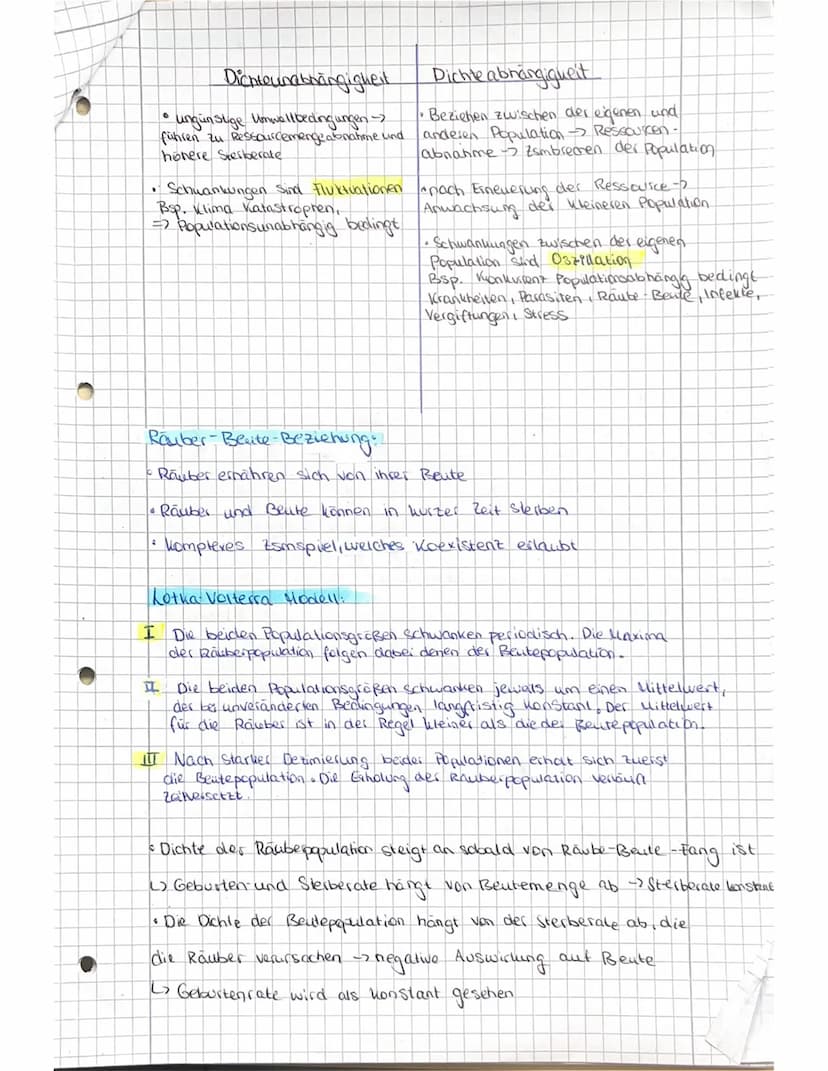 Dichteunabhängigkeit
• ungünstige Umweltbedingungen →
führen zu Ressourcemengeabnahme und
höhere Sterberate
• Schwankungen sind Fluktuationen
Bsp. Klima Katastrophen,
=> Populationsunabhängig bedingt
Dichteabhängigkeit
• Beziehen zwischen der eigenen und
anderen Population → Ressourcen-
abnahme → Zsmbrechen der Population
• nach Erneuerung der Ressource →
Anwachsung der kleineren Population
• Schwankungen zwischen der eigenen
Population sind Oszillation
Bsp. Konkurrent Populationsabhängig bedingt
Krankheiten, Parasiten, Räube-Beute, Infekte,
Vergiftungen, Stress
Räuber-Beute-Beziehung:
• Räuber ernähren sich von ihrer Beute
• Räuber und Beute können in kurzer Zeit sterben
• komplexes Zsmspiel, welches Koexistent erlaubt
Lotka-Volterra Modell:
I Die beiden Populationsgrößen schwanken periodisch. Die Maxima
der Räuberpopulation folgen dabei denen der Beutepopulation.
II Die beiden Populationsgrößen schwanken jeweils um einen Mittelwert,
der bei unveränderten Bedingungen langfristig konstant. Der Mittelwert
für die Räuber ist in der Regel kleiner als die der Beutepopulation.
III Nach starker Dezimierung beider Populationen erholt sich zuerst
die Beutepopulation. Die Erholung der Räuberpopulation verläuft
zeitversetzt.
• Dichte der Räuberpopulation steigt an sobald von Räube-Beute-Fang ist
↳ Geburten- und Sterberate hängt von Beutemenge ab → Sterberate konstant
• Die Dichte der Beutepopulation hängt von der Sterberate ab, die
die Räuber verursachen → negative Auswirkung auf Beute
↳ Geburtenrate wird als konstant gesehen